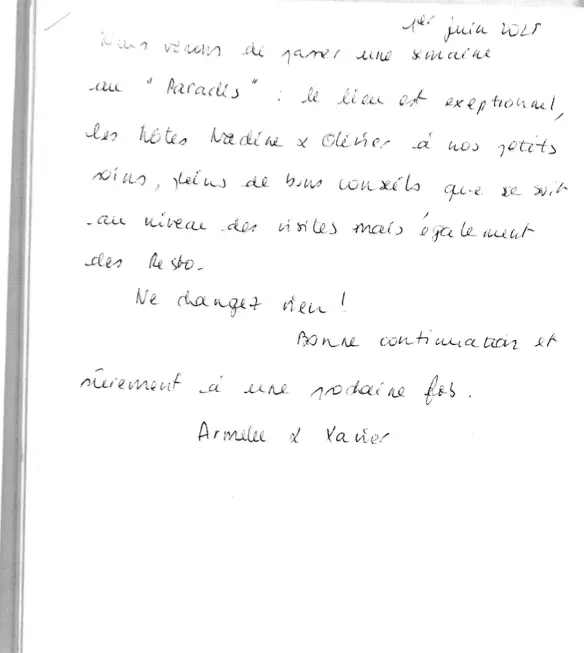 1er juin 2025
Nous venons de passer une semaine
au "Paradis" : le lieu est exeptionnel,
les hôtes Nadine & Olivier à nos petits
soins, pleins de bons conseils que ce soit
au niveau des visites mais également
des Resto.
Ne changez rien !
Bonne continuation et
sûrement à une prochaine fois.
Armelle & Xavier